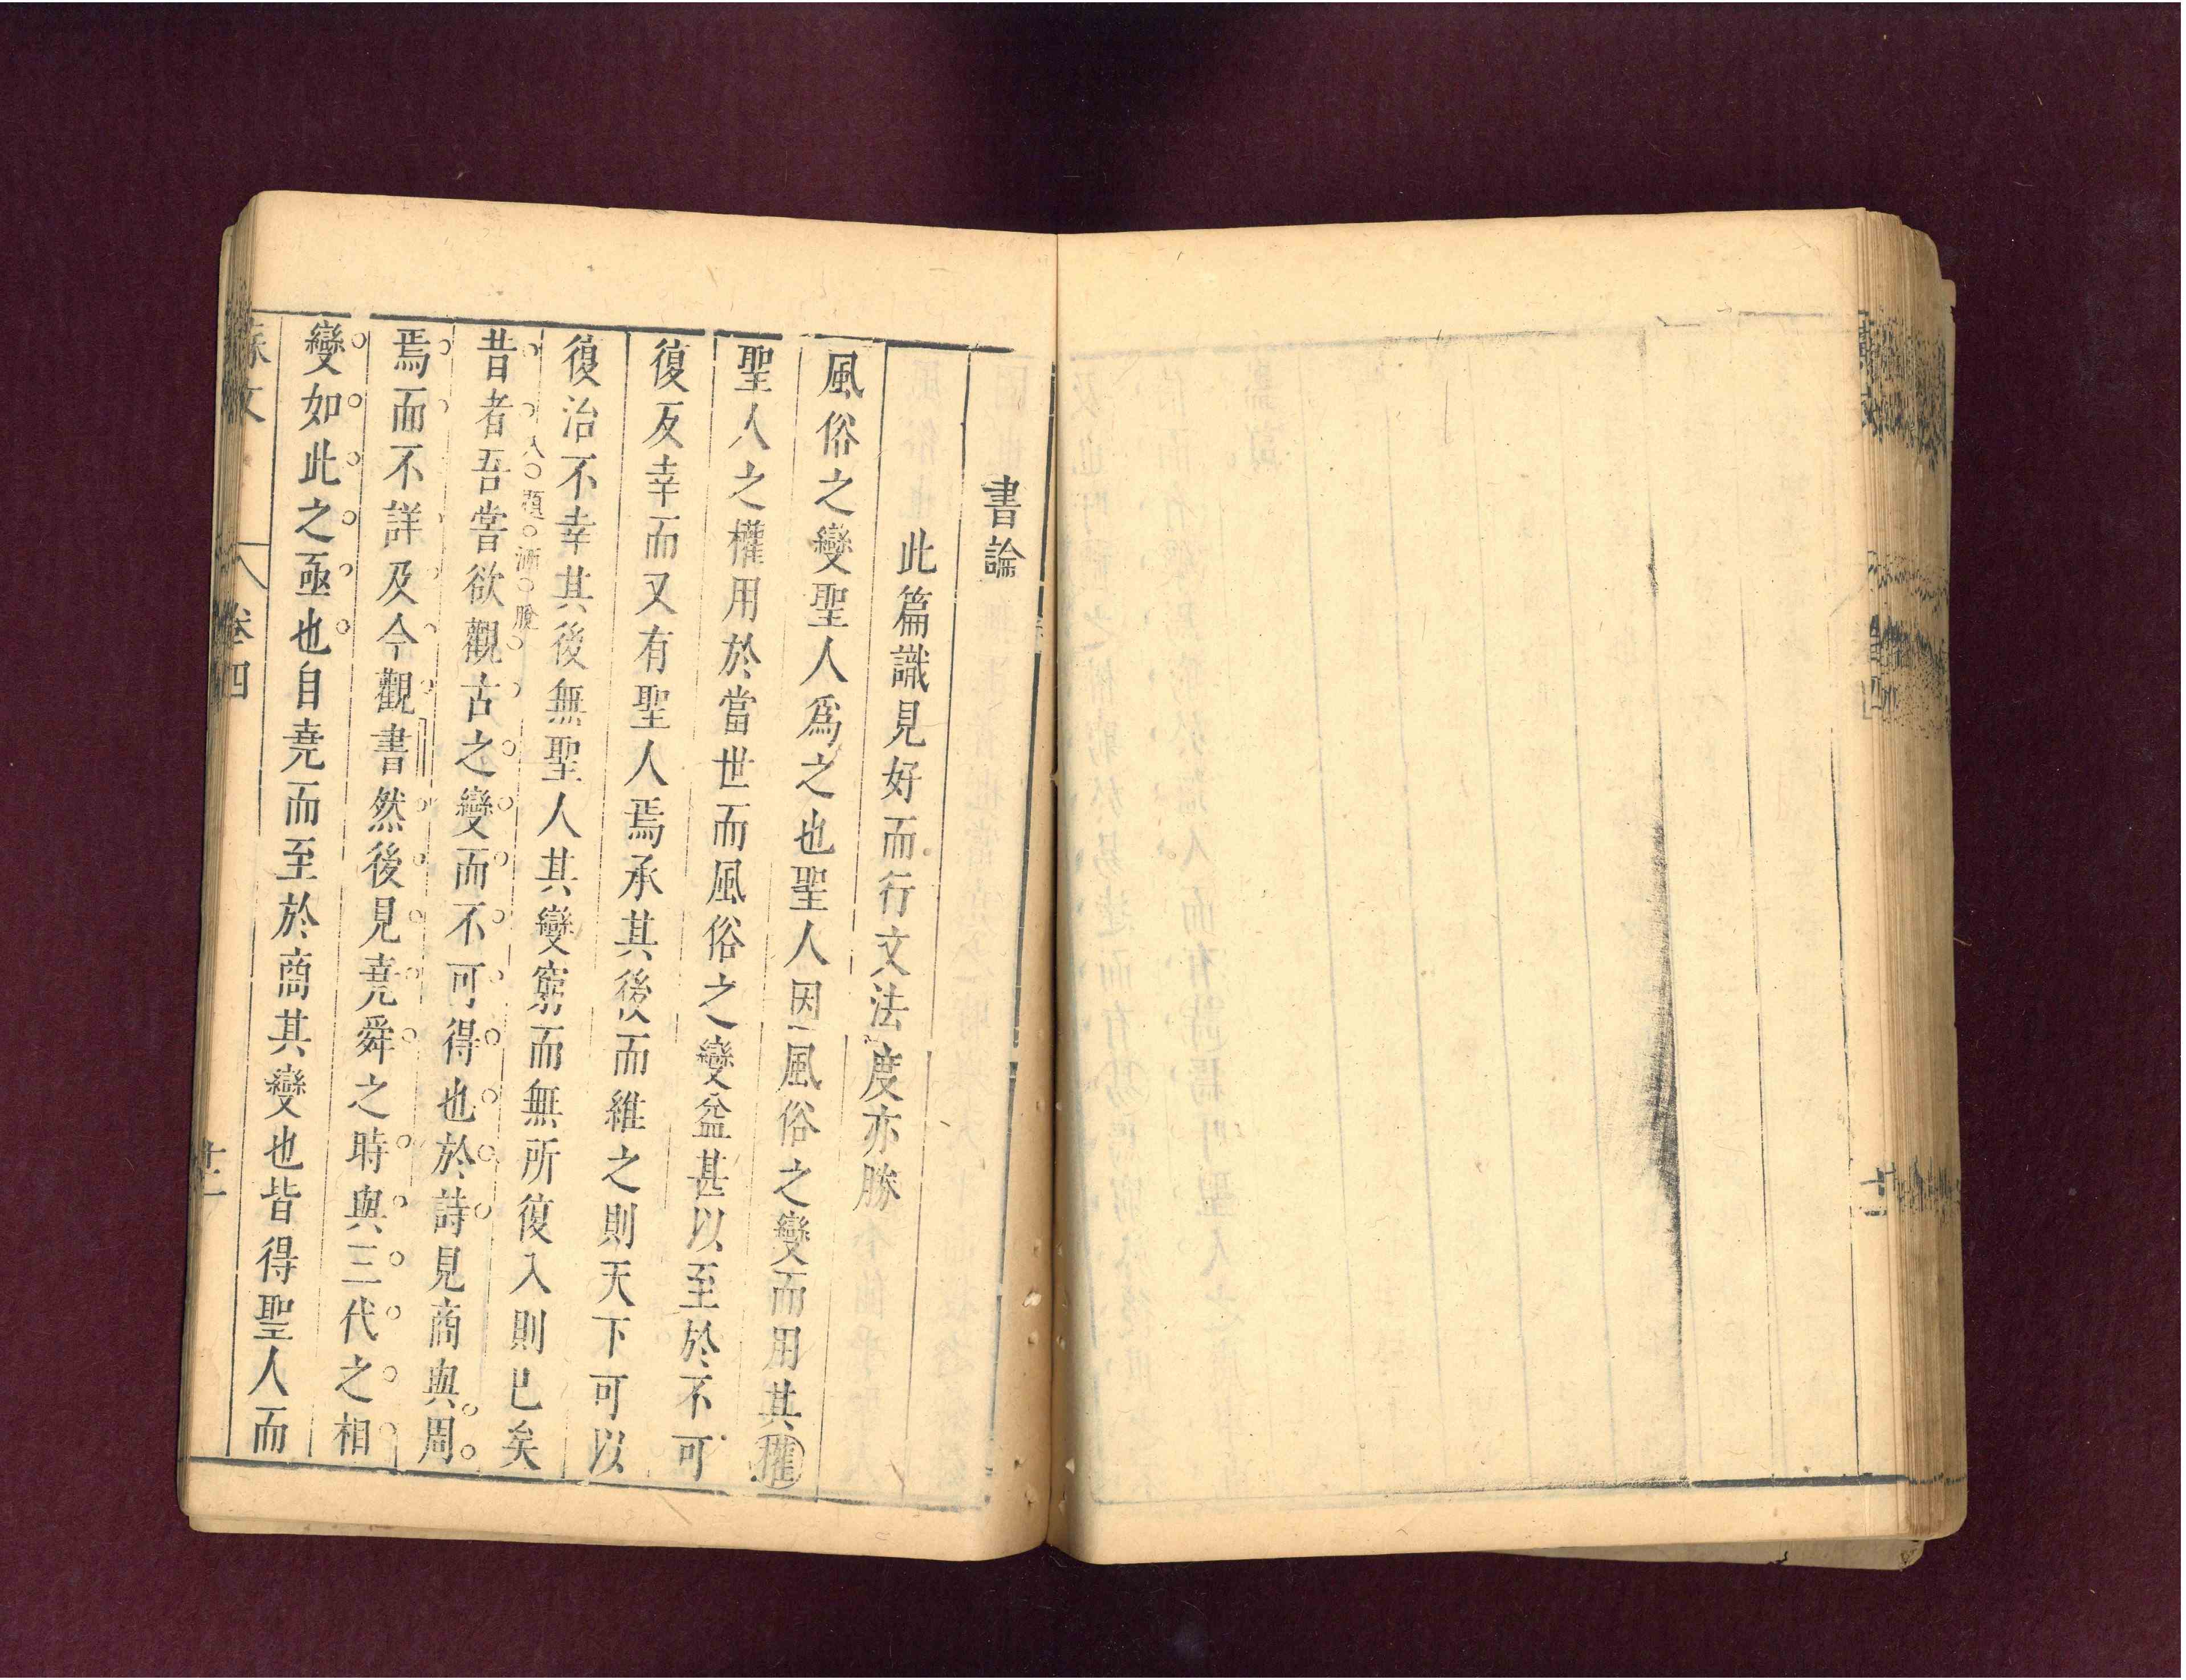 書論
此篇識見好而行文法度亦勝
風俗之變聖人爲之也聖人因風俗之變而用其權
聖人之權用於當世而風俗之變益甚以至於不可
復反幸而又有聖人焉承其後而維之則天下可以
復治不幸其後無聖人其變窮而無所復入則已矣
入題洒脫
昔者吾嘗欲觀古之變而不可得也於詩見商與周
焉而不詳及今觀書然後見堯舜之時與三代之相
變如此之亟也自堯而至於商其變也皆得聖人而
蘇文
卷四